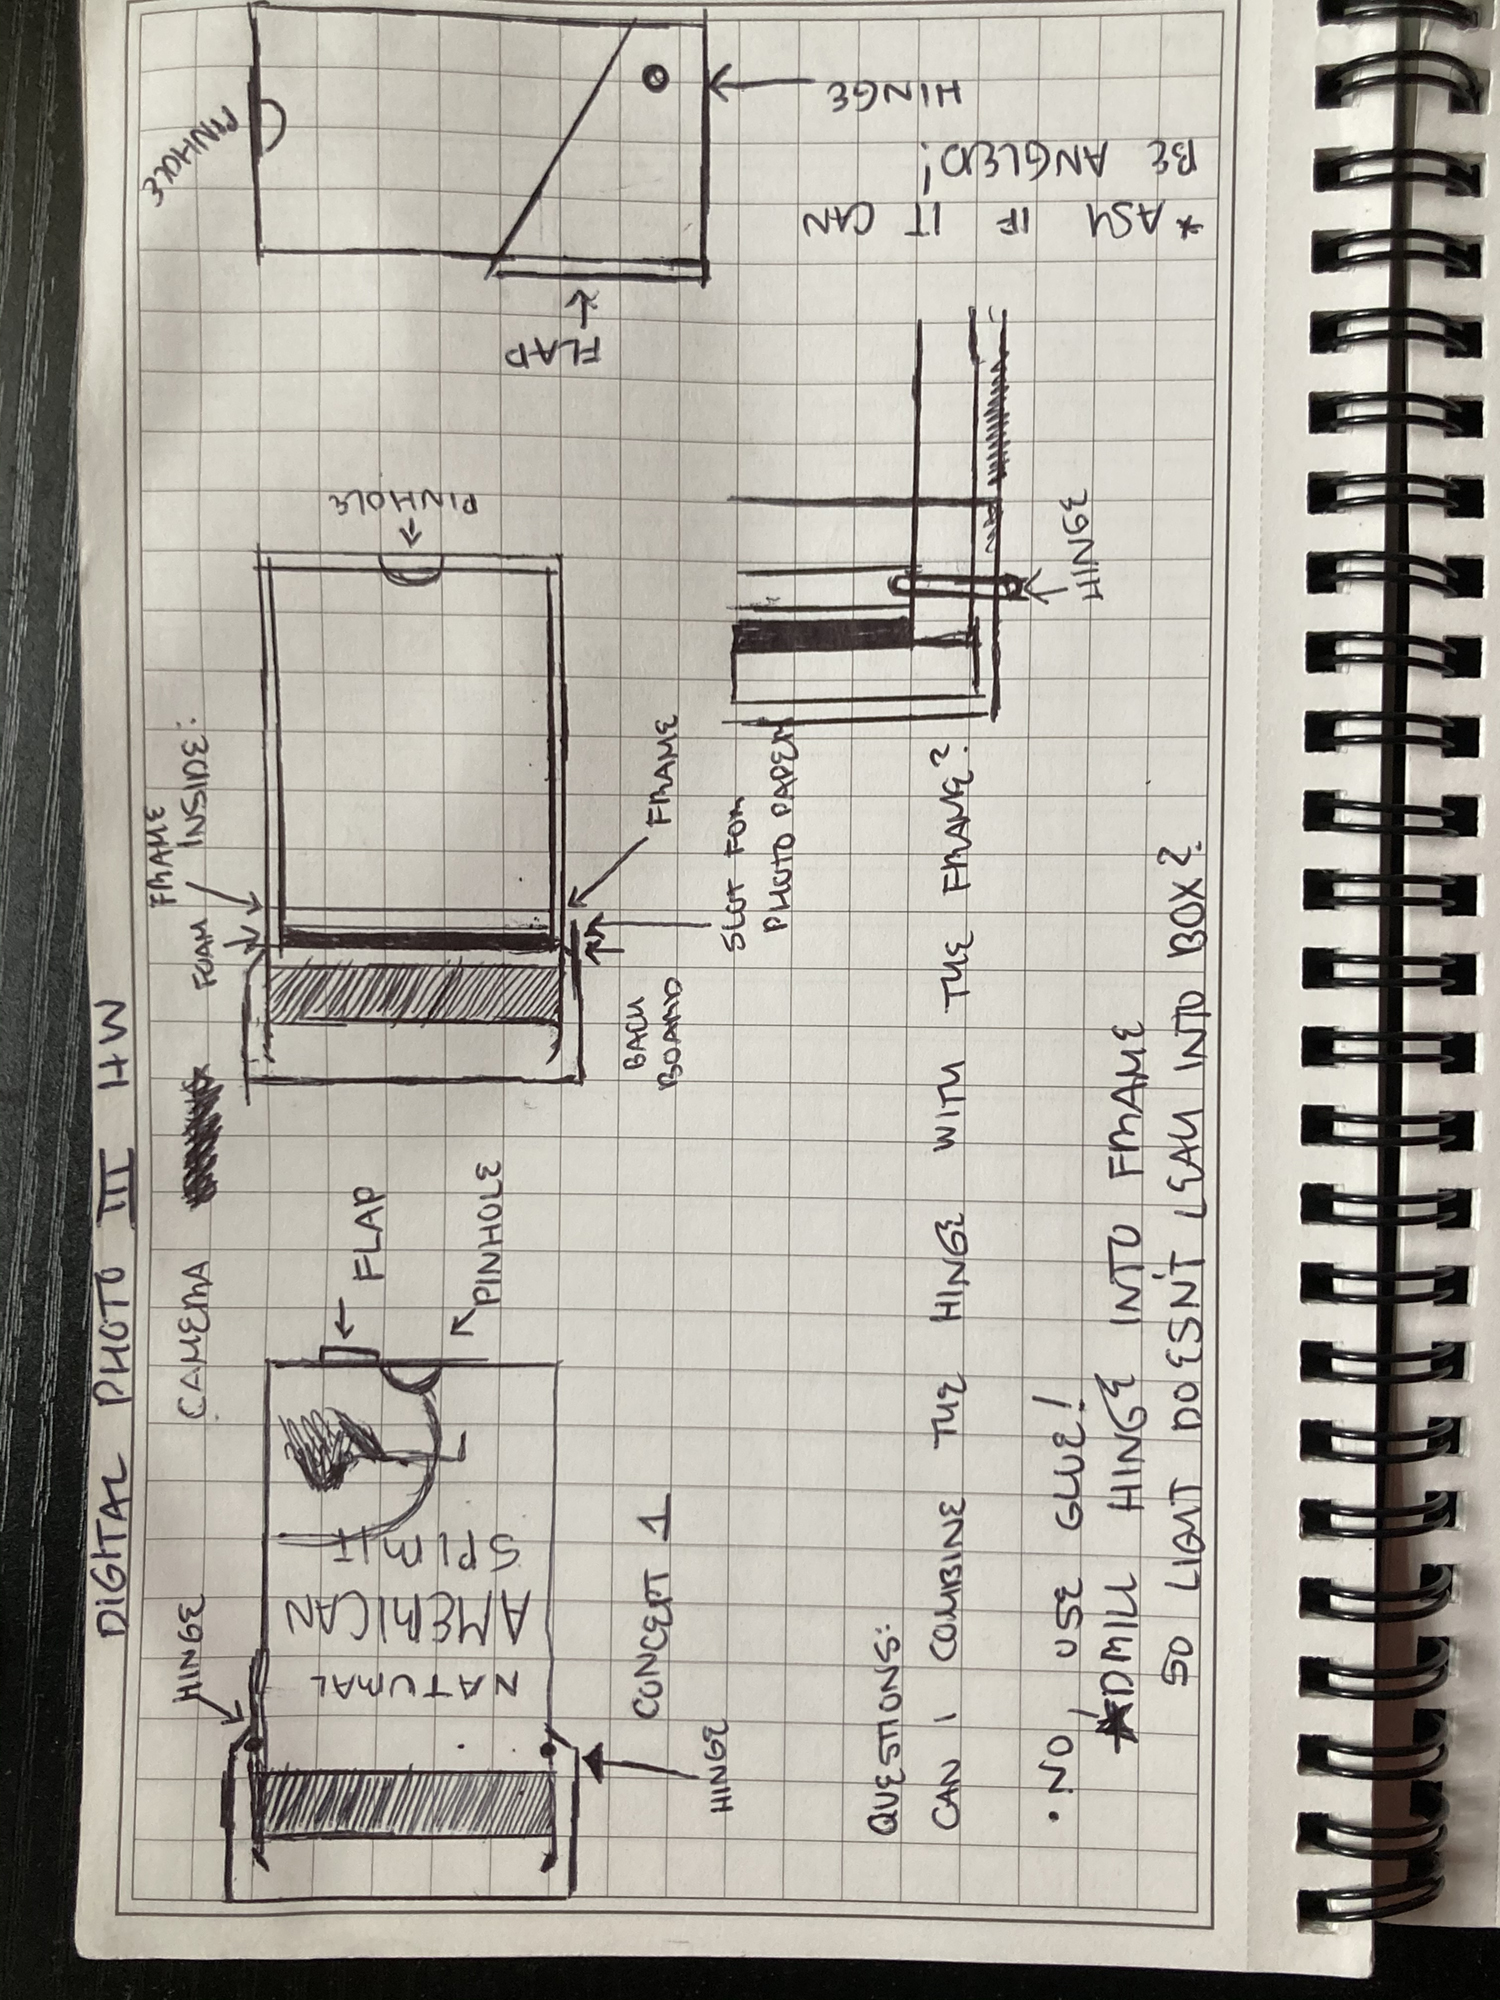 DIGITAL PHOTO III HW
CAMERA
HINGE
NATURAL
AMERICAN
SPIRIT
← FLAP
PINHOLE
HINGE
CONCEPT 1
FRAME
FOAM INSIDE:
PINHOLE
BACK
BOARD
FRAME
SLOT FOR
PHOTO PAPER
HINGE
PINHOLE
FLAP
HINGE
*ASK IF IT CAN
BE ANGLED!
QUESTIONS:
CAN I COMBINE THE HINGE WITH THE FRAME?
• NO, USE GLUE!
*DRILL HINGE INTO FRAME
SO LIGHT DOESN'T LEAK INTO BOX?